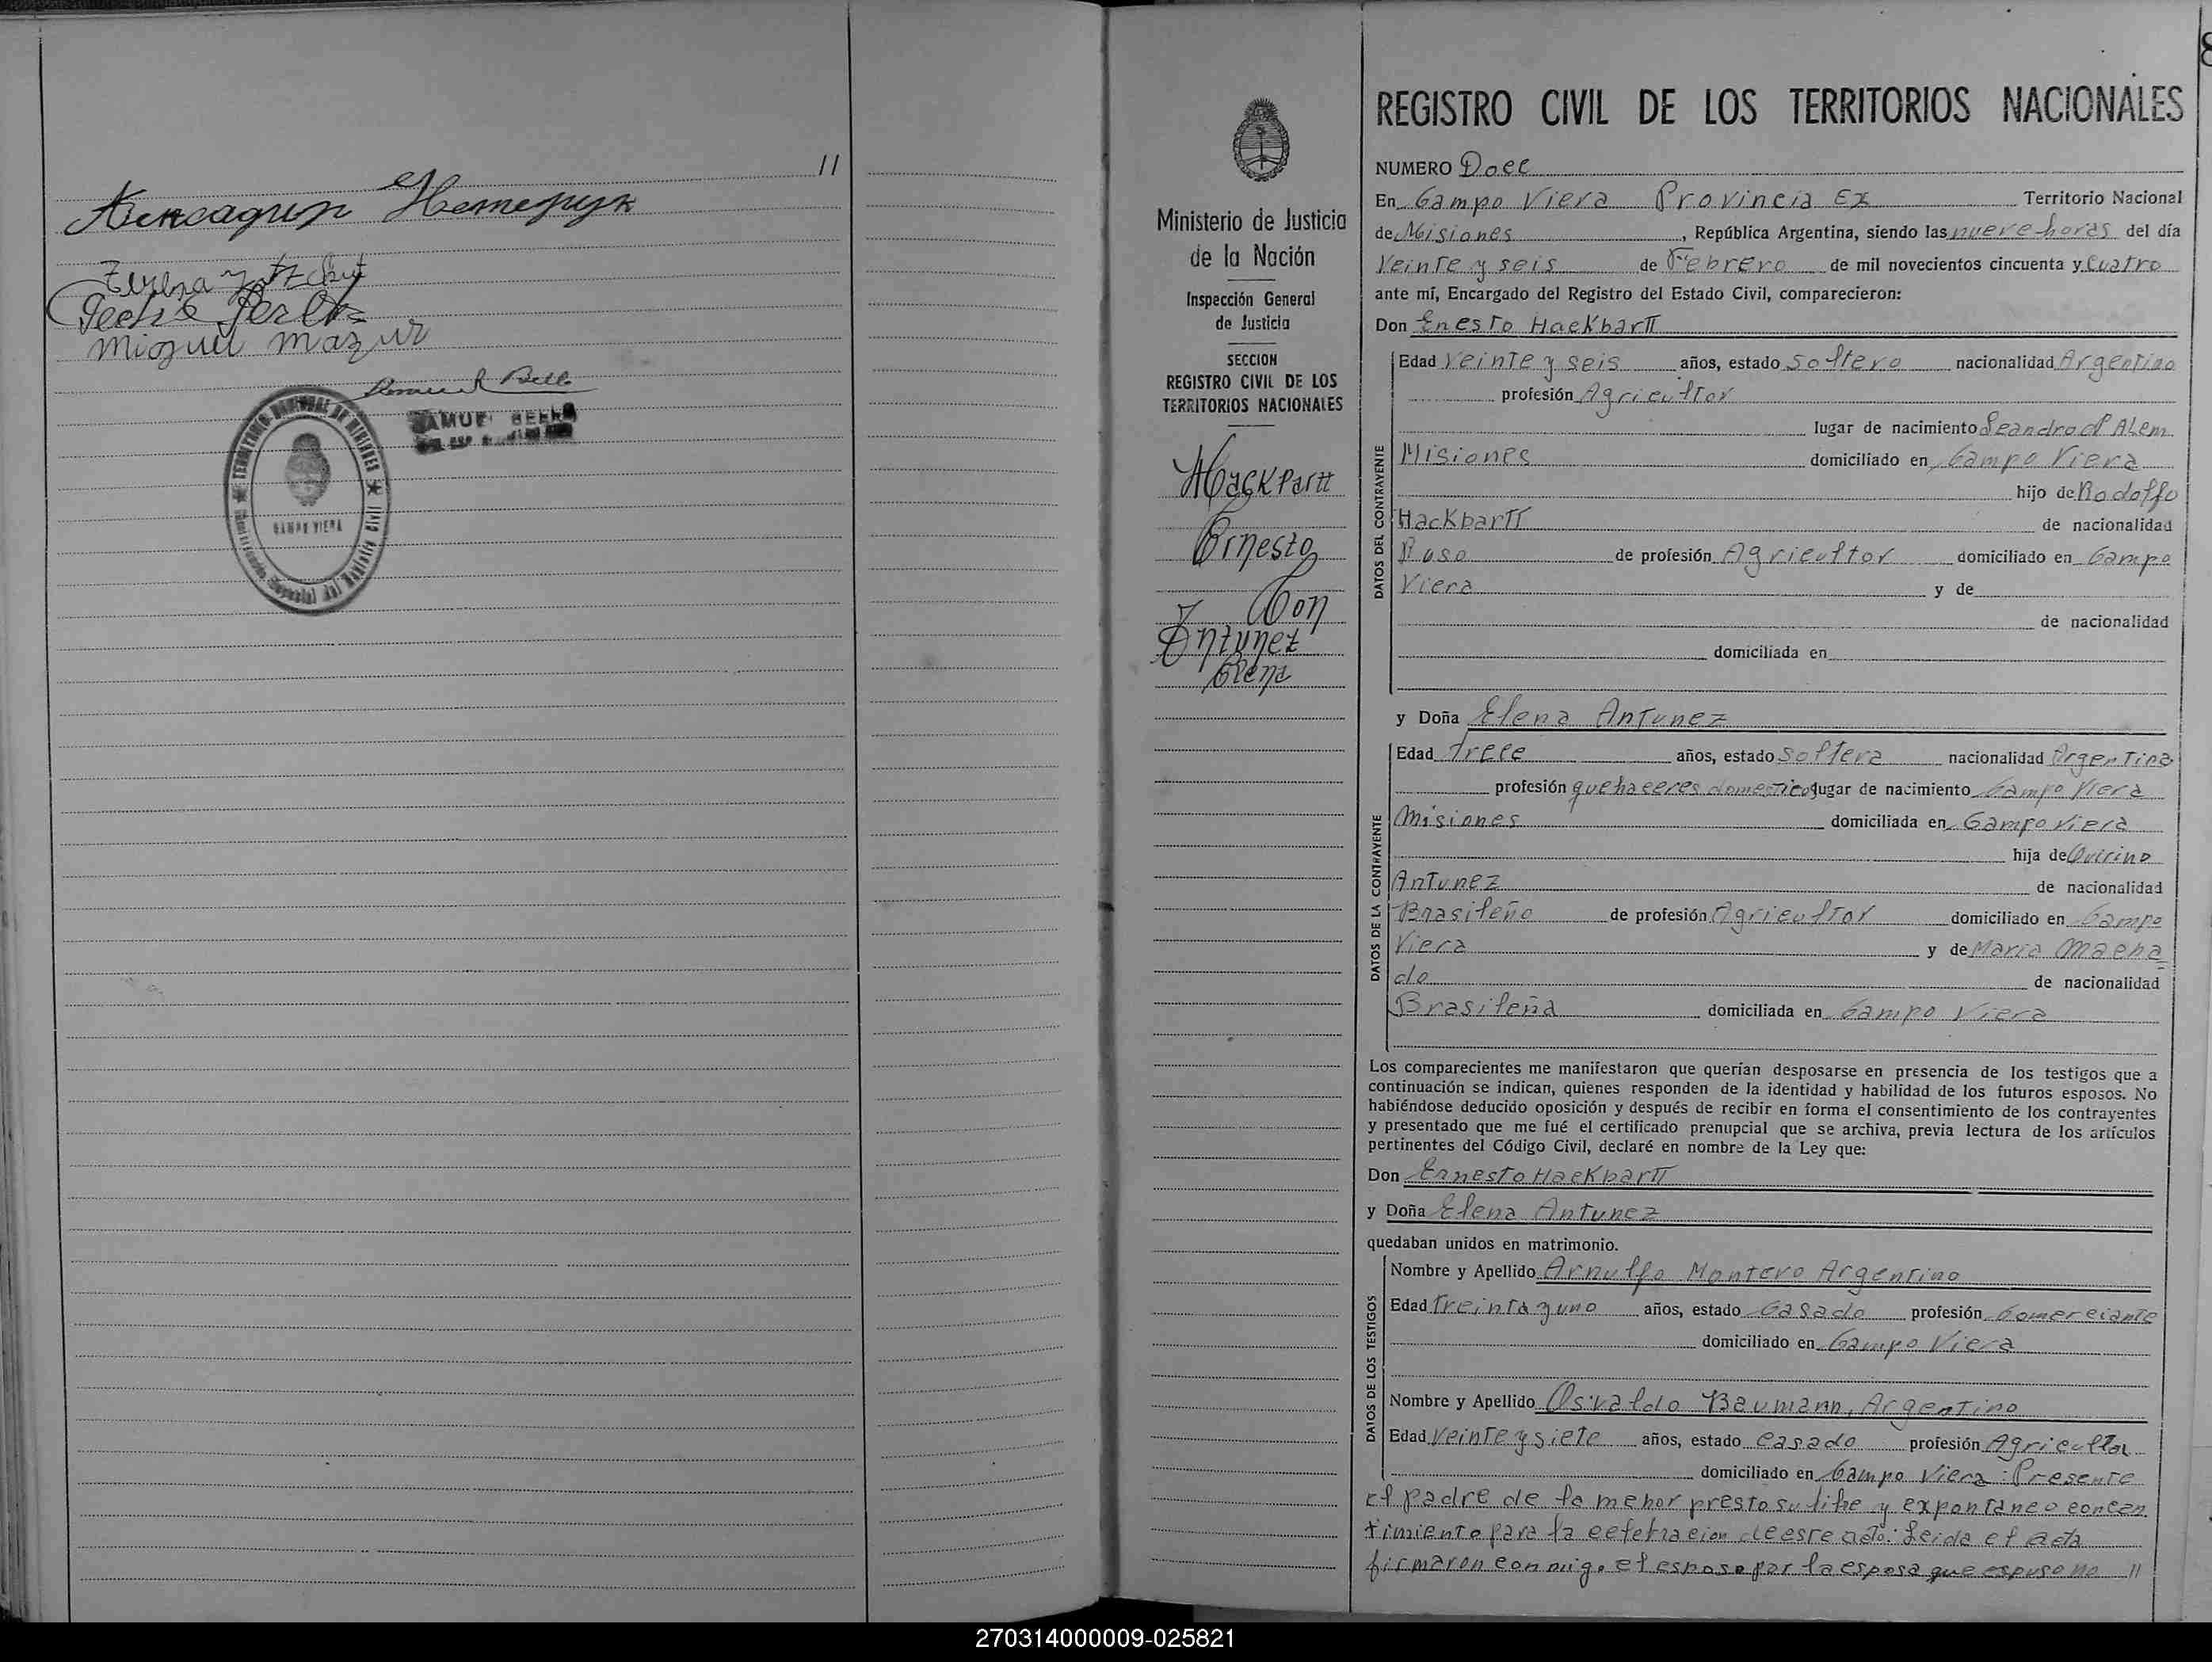 11
Miguel Mazur
SAMUEL BELLO
CAMPO VIERA
8
REGISTRO CIVIL DE LOS TERRITORIOS NACIONALES
Ministerio de Justicia
de la Nación
Inspección General
de Justicia
SECCION
REGISTRO CIVIL DE LOS
TERRITORIOS NACIONALES
Hackbartt
Ernesto
Con
Antunez
Elena
NUMERO Doce
En Campo Viera Provincia Ex Territorio Nacional
de Misiones, República Argentina, siendo las nueve horas del día
Veinte y seis de Febrero de mil novecientos cincuenta y Cuatro
ante mí, Encargado del Registro del Estado Civil, comparecieron:
Don Enesto Hackbartt
DATOS DEL CONTRAYENTE
Edad Veinte y seis años, estado soltero nacionalidad Argentino
profesión Agricultor
lugar de nacimiento Leandro N Alem
Misiones domiciliado en Campo Viera
hijo de Rodolfo
Hackbartt de nacionalidad
Ruso de profesión Agricultor domiciliado en Campo
Viera y de
de nacionalidad
domiciliada en
y Doña Elena Antunez
DATOS DE LA CONTRAYENTE
Edad trece años, estado soltera nacionalidad Argentina
profesión quehaceres domesticos lugar de nacimiento Campo Viera
Misiones domiciliada en Campo Viera
hija de Quirino
Antunez de nacionalidad
Brasileño de profesión Agricultor domiciliado en Campo
Viera y de Maria Macha=
do de nacionalidad
Brasileña domiciliada en Campo Viera
Los comparecientes me manifestaron que querían desposarse en presencia de los testigos que a
continuación se indican, quienes responden de la identidad y habilidad de los futuros esposos. No
habiéndose deducido oposición y después de recibir en forma el consentimiento de los contrayentes
y presentado que me fué el certificado prenupcial que se archiva, previa lectura de los artículos
pertinentes del Código Civil, declaré en nombre de la Ley que:
Don Ernesto Hackbartt
y Doña Elena Antunez
quedaban unidos en matrimonio.
DATOS DE LOS TESTIGOS
Nombre y Apellido Arnulfo Montero Argentino
Edad treinta y uno años, estado Casado profesión Comerciante
domiciliado en Campo Viera
Nombre y Apellido Osvaldo Baumann, Argentino
Edad Veinte y siete años, estado casado profesión Agricultor
domiciliado en Campo Viera: Presente
el padre de la menor presto su libre y expontaneo concen
timiento para la celebracion de este acto: Leida el acta
firmaron conmigo el esposo por la esposa que espuso no 11
270314000009-025821